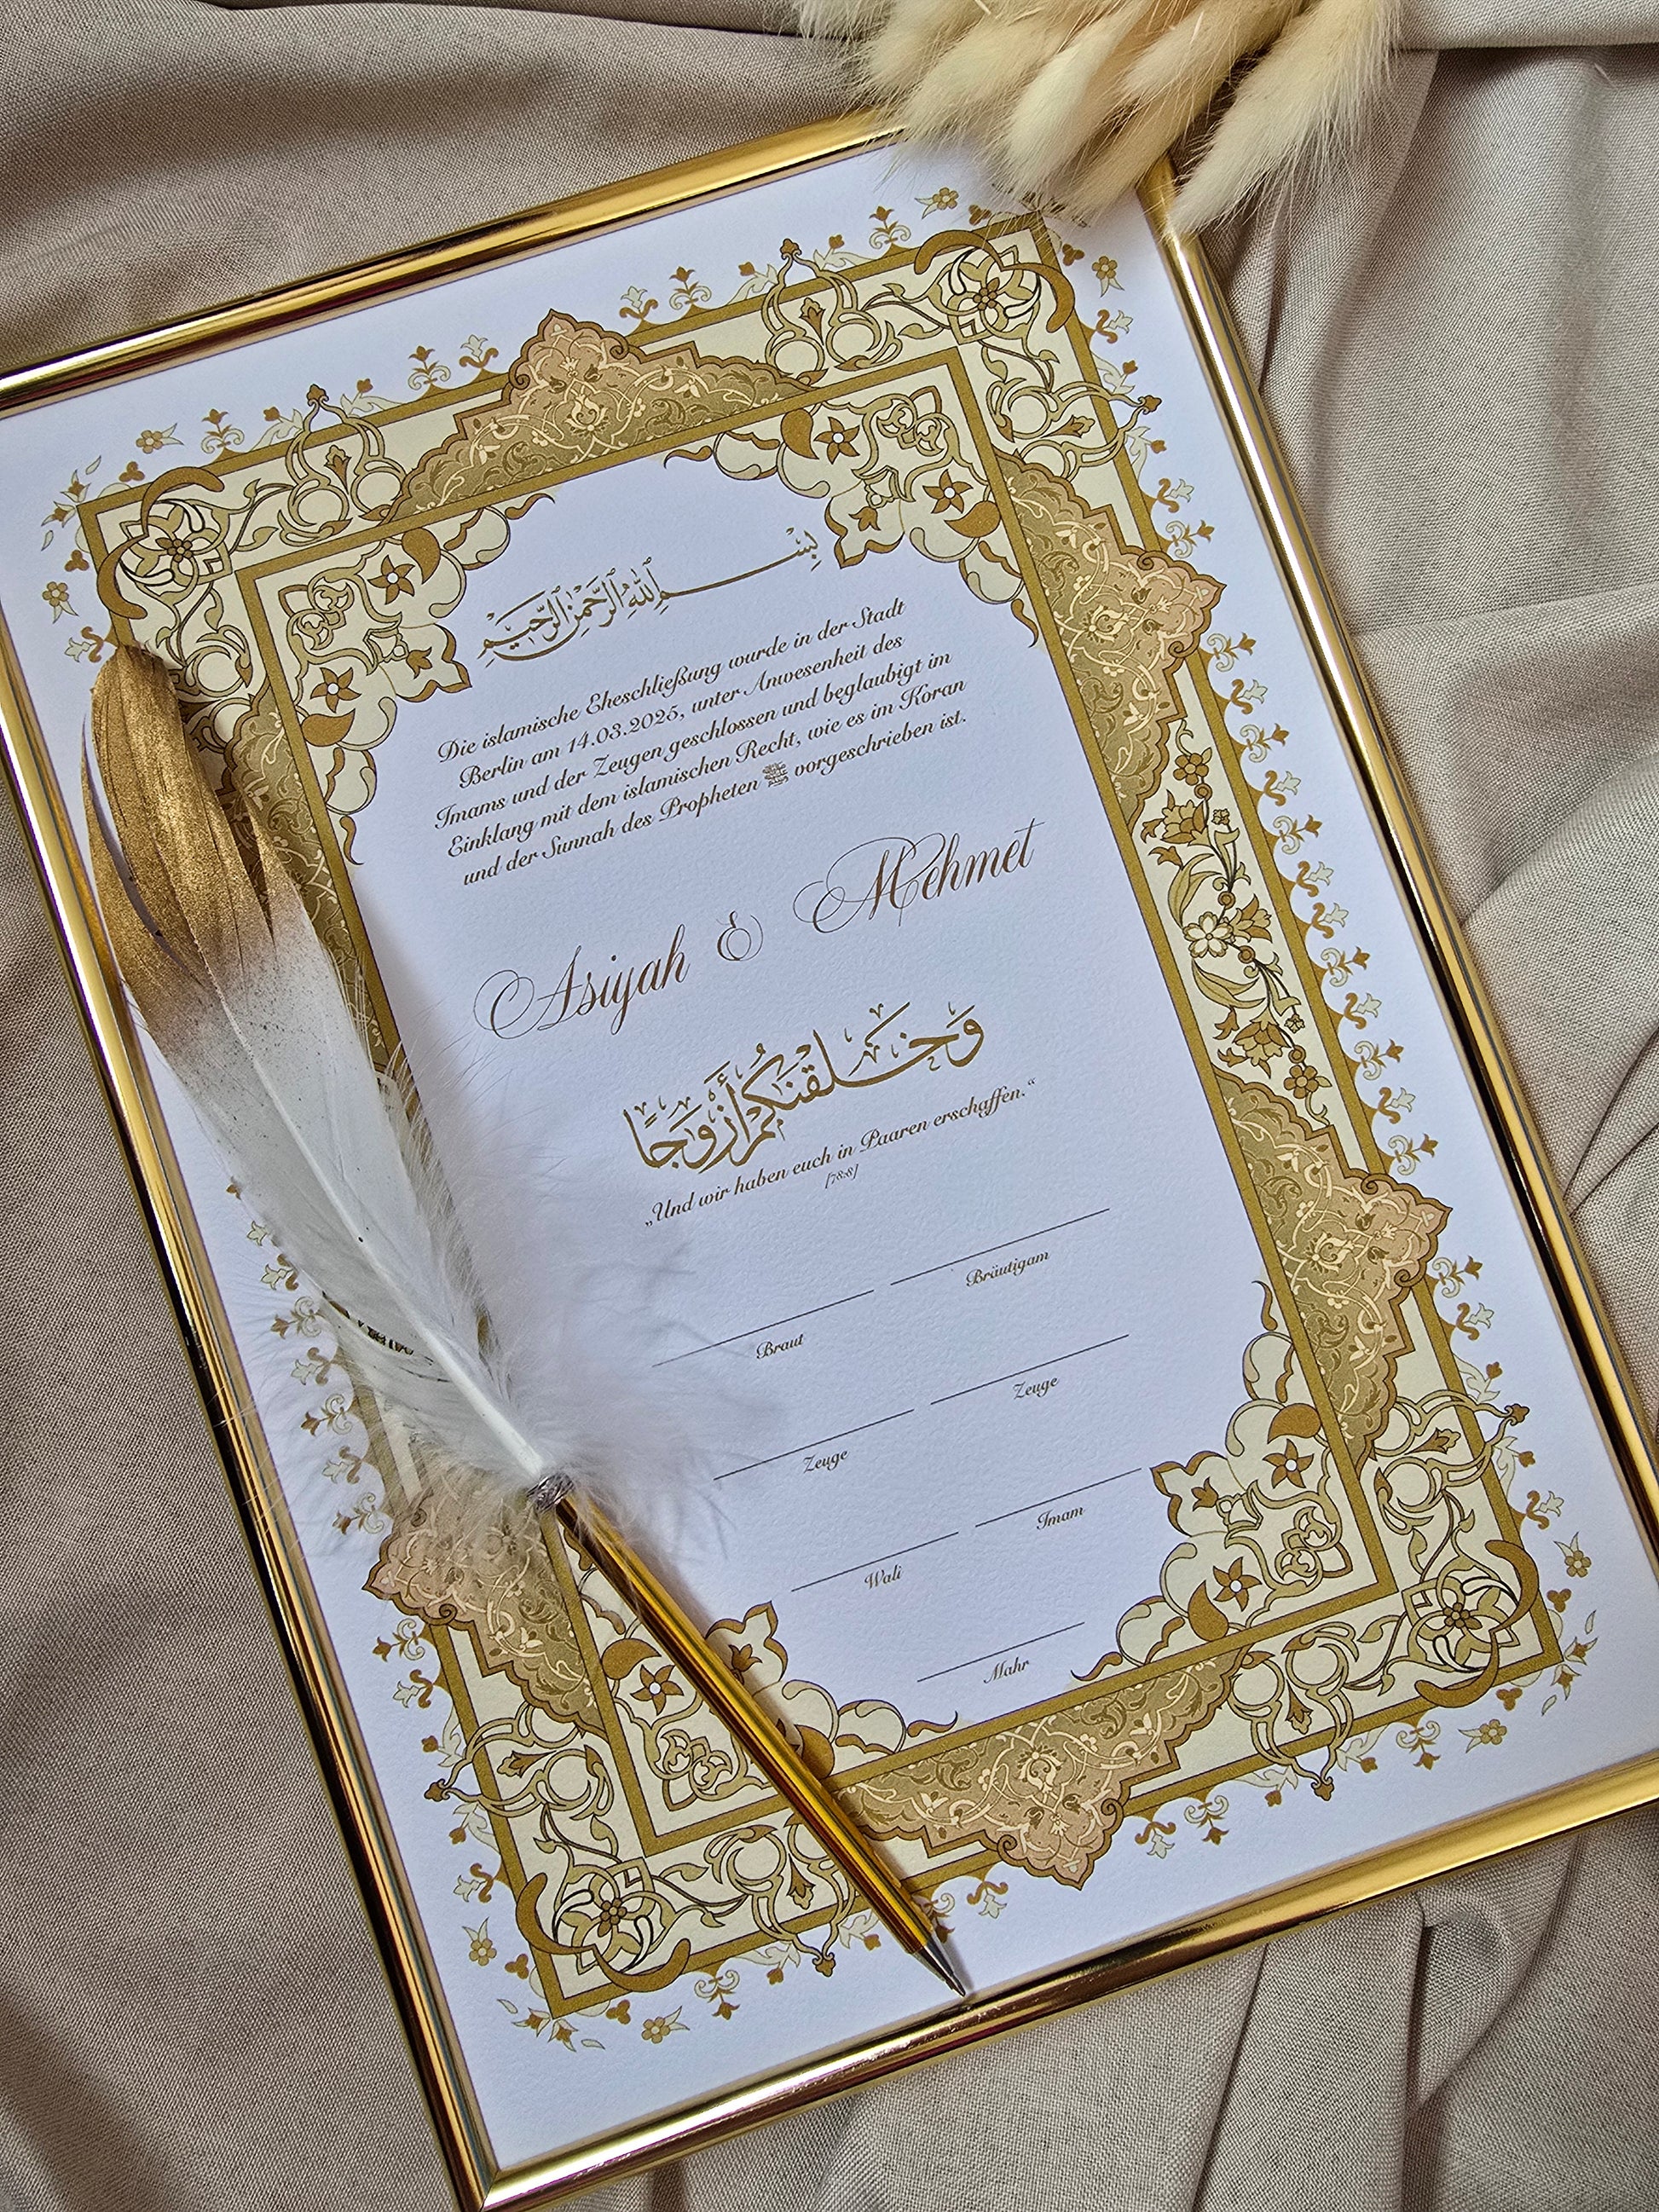 بِسْمِ اللهِ الرَّحْمٰنِ الرَّحِيْمِ
Die islamische Eheschließung wurde in der Stadt
Berlin am 14.03.2025, unter Anwesenheit des
Imams und der Zeugen geschlossen und beglaubigt im
Einklang mit dem islamischen Recht, wie es im Koran
und der Sunnah des Propheten ﷺ vorgeschrieben ist.
Asiyah & Mehmet
وَخَلَقْنَكُمْ أَزْوَجًا
„Und wir haben euch in Paaren erschaffen.“
[78:8]
Braut
Bräutigam
Zeuge
Zeuge
Wali
Imam
Mahr